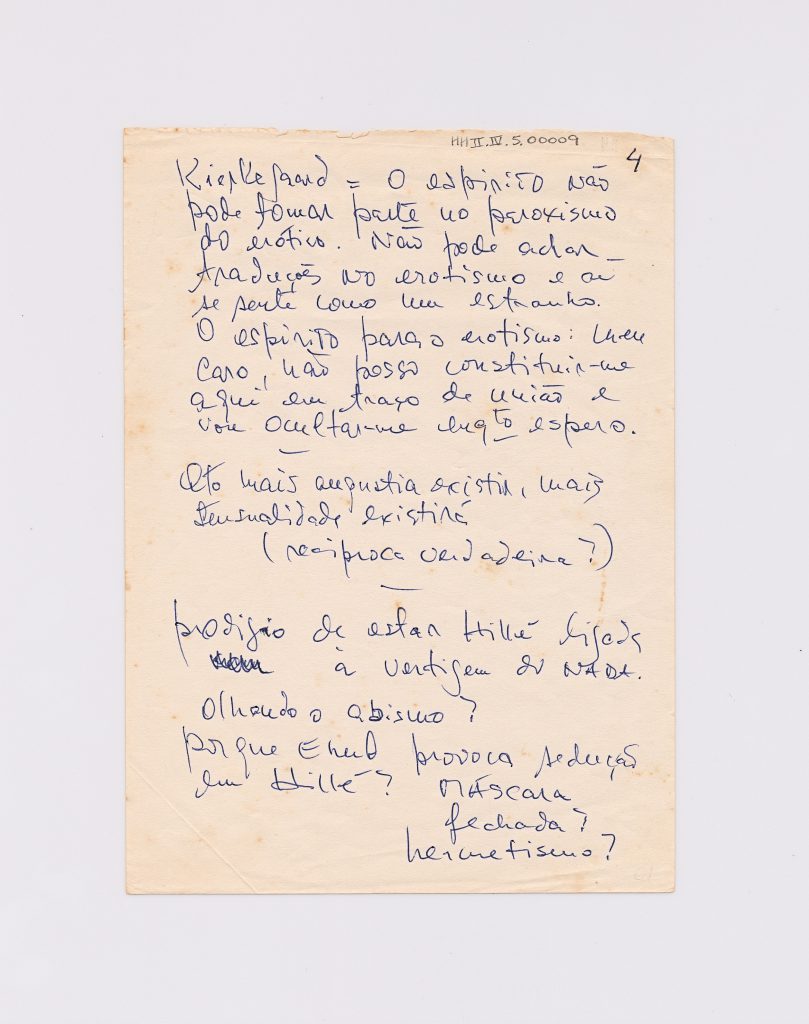 HH II.IV.5.00009
4
Kierkegaard = O espírito não
pode tomar parte no paroxismo
do erótico. Não pode achar
traduções no erotismo e aí
se sente como um estranho.
O espírito para o erotismo: meu
caro, não posso constituir-me
aqui em traço de união e
vou ocultar-me enqto espero.
Qto mais angustia existir, mais
sensualidade existirá
(recíproca verdadeira?)
prodígio de estar Hillé ligada
à vertigem do NADA.
Olhando o abismo?
porque Ehud provoca sedução
em Hillé? MÁSCARA
fechada?
hermetismo?